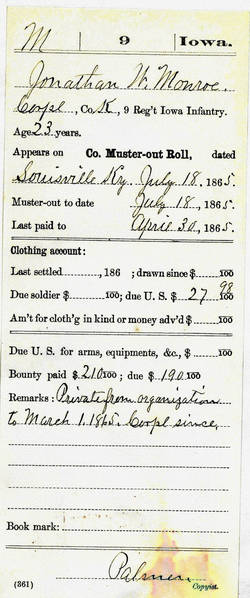 M 9 Iowa.
Jonathan W. Monroe
Corpl, Co. K, 9 Reg't Iowa Infantry.
Age 23 years.
Appears on Co. Muster-out Roll, dated
Louisville Ky July 18, 1865.
Muster-out to date July 18, 1865.
Last paid to April 30, 1865.
Clothing account:
Last settled , 186 ; drawn since $ 100
Due soldier $ 100; due U. S. $ 27 98 100
Am't for cloth'g in kind or money adv'd $ 100
Due U. S. for arms, equipments, &c., $ 100
Bounty paid $ 210 100; due $ 190 100
Remarks: Private from organization
to March 1. 1865. Corpl since.
Book mark:
Palmer
(361) Copyist.